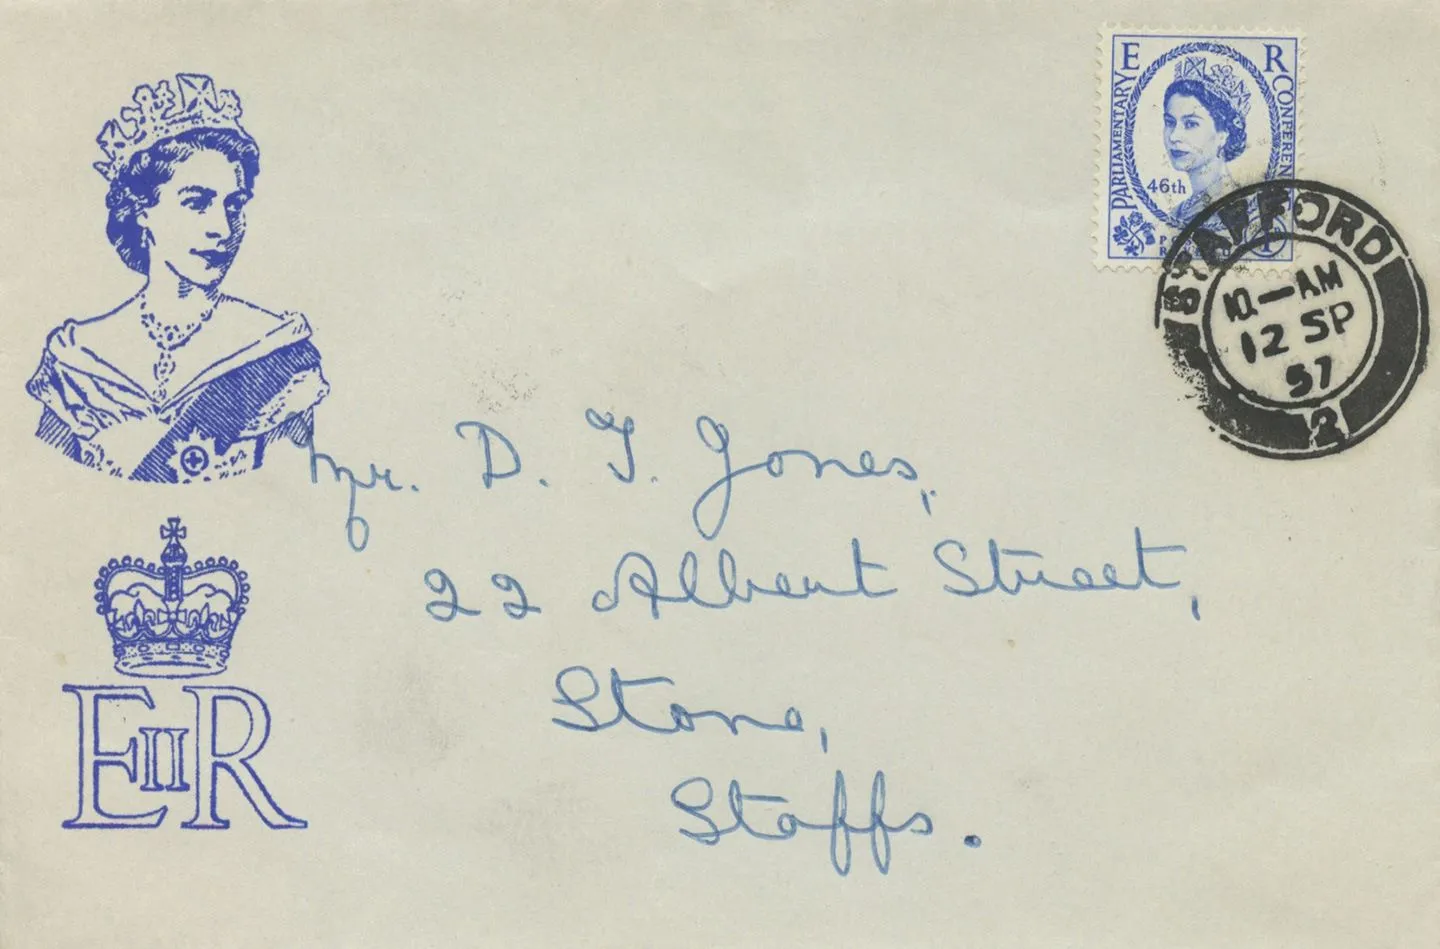 E R
PARLIAMENTARY
CONFEREN
46th
STAFFORD
10.—AM
12 SP
57
2
Mr. D. J. Jones,
22 Albert Street,
Stone,
Staffs.
EIIR